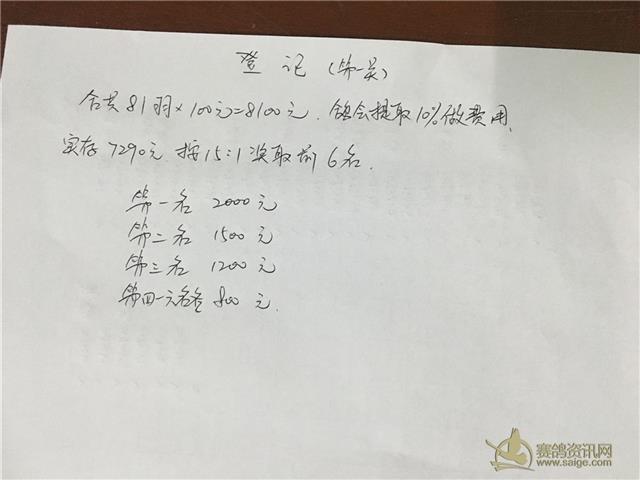 登记(第一关)
合共81羽×100元=8100元.鸽会提取10%做费用.
实存7290元 按15:1奖取前6名.
第一名 2000元
第二名 1500元
第三名 1200元
第四一六名各 800元.
赛鸽资讯网
www.saige.com